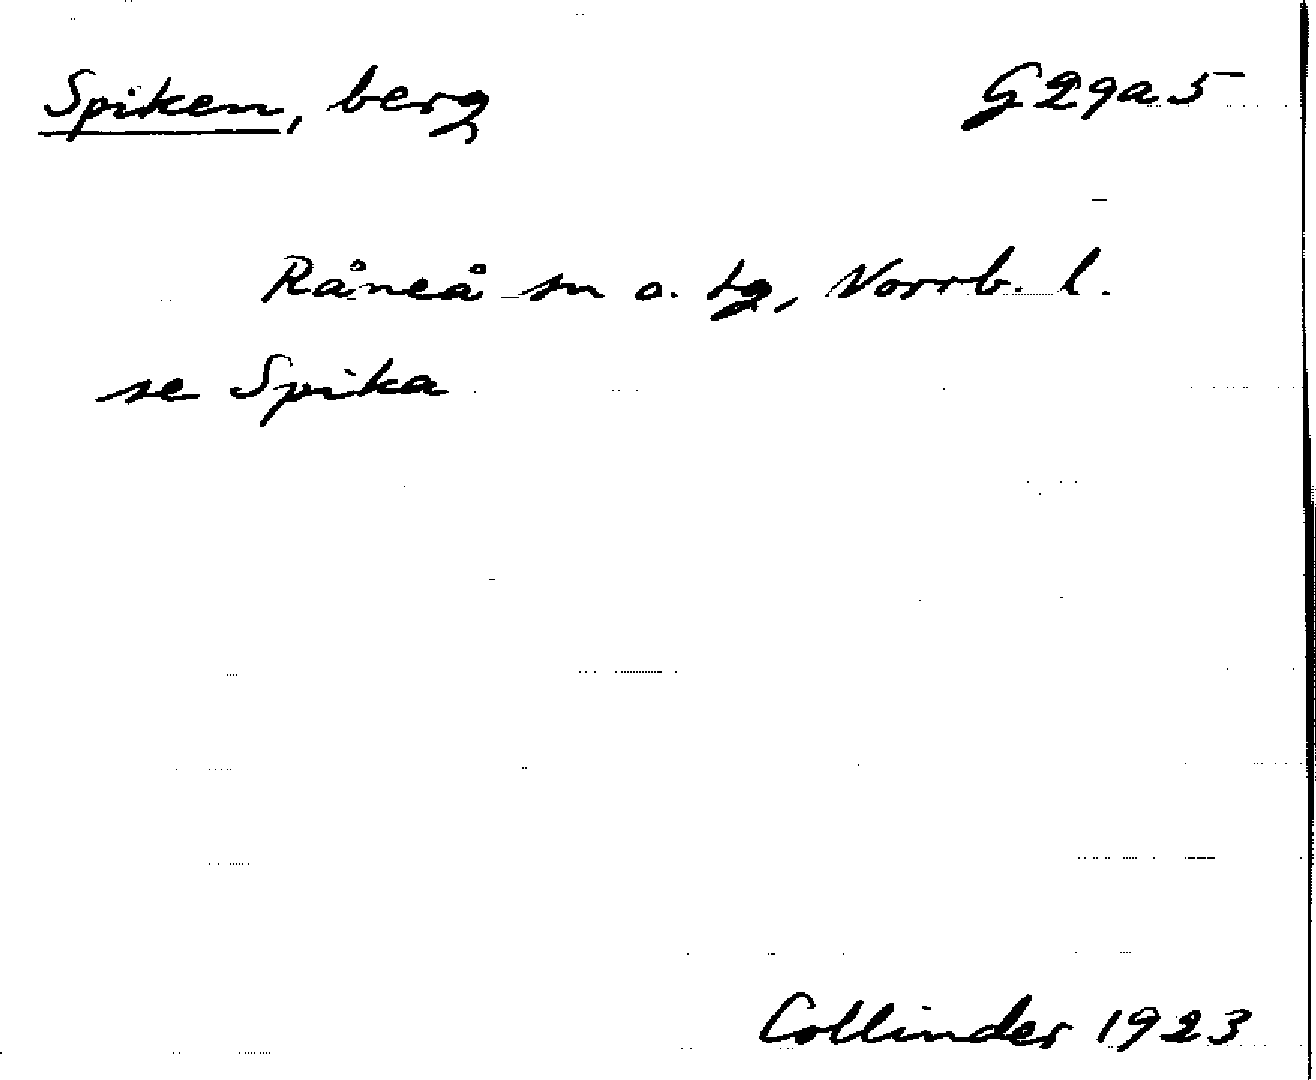 Spiken, berg G29a5
Råneå sn o. tg, Norrb. l.
se Spika
Collinder 1923